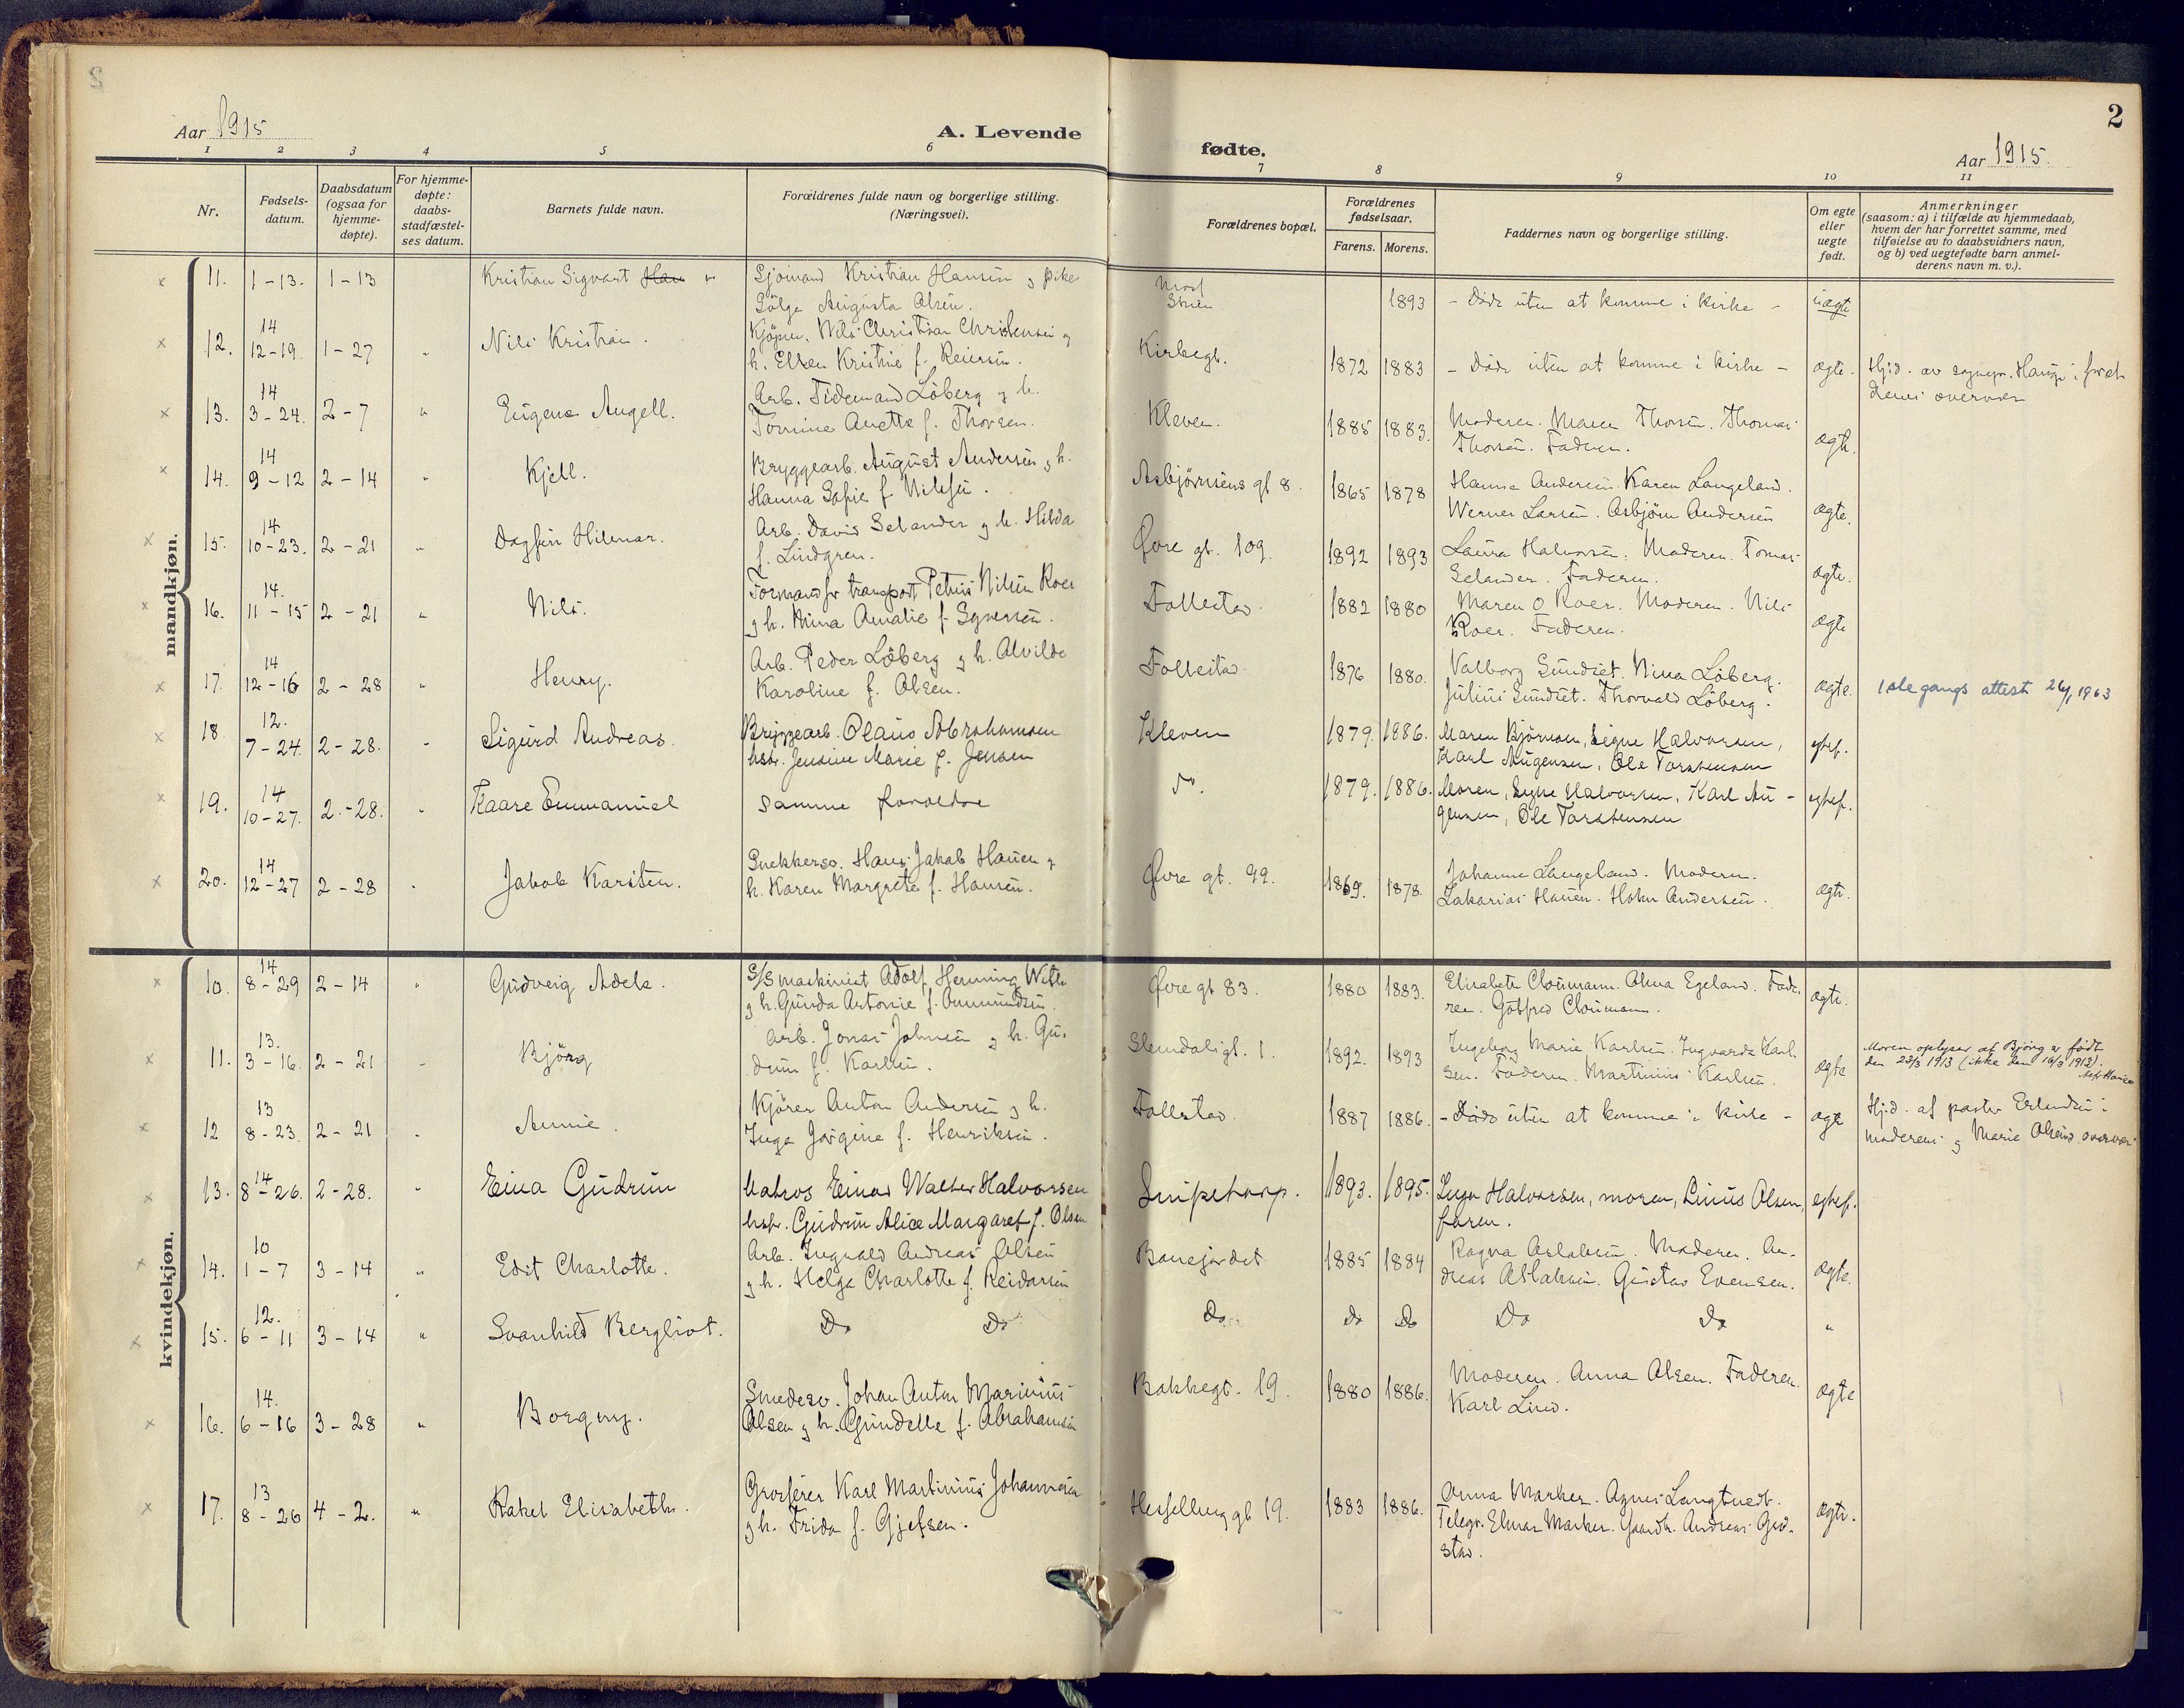 2
Aar 1915
A. Levende
fødte.
Aar 1915.
1 2 3 4 5 6 7 8 9 10 11
Nr.
Fødsels-
datum.
Daabsdatum
(ogsaa for
hjemme-
døpte).
For hjemme-
døpte:
daabs-
stadfæstel-
ses datum.
Barnets fulde navn.
Forældrenes fulde navn og borgerlige stilling.
(Næringsvei).
Forældrenes bopæl.
Forældrenes
fødselsaar.
Farens. Morens.
Faddernes navn og borgerlige stilling.
Om egte
eller
uegte
født.
Anmerkninger
(saasom: a) i tilfælde av hjemmedaab,
hvem der har forrettet samme, med
tilføielse av to daabsvidners navn,
og b) ved uegtefødte barn anmel-
derens navn m. v.).
mandkjøn.
11. 1-13. 1-13 Kristian Sigvart Sjömand Kristian Hansen og pike 1893 - Döde uten at komme i kirke - uægte
Augusta Olsen.
14
12. 12-19. 1-27 " Nils Kristian. Nils Christian Christensen og Kirkegt. 1872 1883 - Döde uten at komme i kirke - ægte. Hj.d. av sognepr. Hauge i foræl-
h. Ellen Kristine f. Reiersen. drenes overvær
14
13. 3-24. 2-7 " Eugene Angell. Arb. Tidemand Löberg og h. Kleven. 1885 1883. Moderen. Maren Thorsen. Thomas
Tomine Anette f. Thorsen. Thorsen. Faderen. ægte.
14
14. 9-12 2-14 " Kjell. Bryggearb. August Andersen og h. Asbjörnsens gt 8. 1865 1878 Hanna Andersen. Karen Langeland.
Hanna Sofie f. Nilsen. Werner Larsen. Asbjörn Andersen ægte.
14
15. 10-23. 2-21 " Dagfin Hilmar. Arb. David Selander og h. Hilda Øvre gt. 109. 1892 1893 Laura Halvorsen. Moderen. Tomas
f. Lindgren. Selander. Faderen. ægte.
14.
16. 11-15 2-21 " Nils. Formand for transport Petrus Nilsen Roer Follestad. 1882 1880 Maren O Roer. Moderen. Nils
og h. Nina Amalie f. Syversen. Roer. Faderen. ægte
14
17. 12-16 2-28 " Henry. Arb. Peder Löberg og h. Alvilde Follestad. 1876 1880. Valborg Sundset. Nina Löberg. ægte. 1ste gangs attest 26/1 1963
Karoline f. Olsen. Julius Sundset. Thorvald Löberg.
12.
18. 7-24. 2-28. " Sigurd Andreas. Bryggearb. Olaus Abrahamsen Kleven 1879. 1886. Maren Björnsen, Signe Halvorsen, egtef.
hstr. Jensine Marie f. Jensen Karl Augensen, Ole Torstensen
14
19. 10-27. 2-28. " Kaare Emmanuel samme forældre do. 1879. 1886. Moren, Signe Halvorsen, Karl Au- egtef.
gensen, Ole Torstensen
14
20. 12-27 2-28 " Jakob Karsten. Snekkersv. Hans Jakob Hansen og Øvre gt. 99. 1869. 1878. Johanne Langeland. Moderen.
h. Karen Margrete f. Hansen. Zakarias Hansen. Andersen. ægte.
kvindekjøn.
14
10. 8-29 2-14 " Gudveig Adele. S/S maskinist Adolf Henning Øvre gt 83. 1880 1883. Elisabeth Cloumann. Alma Egeland. Fade- ægte.
og h. Gunda Antonie f. Ommundsen. ren. Gotfred Cloumann.
13.
11. 3-16. 2-21 " Bjørg Arb. Jonas Johnsen og h. Gu- 1. 1892. 1893 Ingeborg Marie Karlsen. Ingvarda Karl- ægte Moren oplyser at Bjørg er født
drun f. Karlsen. sen. Faderen. Martinius Karlsen. den 23/3 1913 (ikke den 16/3 1913).
13
12 8-23. 2-21 " Annie. Kjörer Anton Andersen og h. Follestad. 1887 1886. - Döde uten at komme i kirke - ægte Hj.d. af pastor Erlandsen i
Inga Jörgine f. Henriksen. moderens og Marie Olsens overvær
14
13. 8-26. 2-28. " Eina Gudrun Matros Einar Walter Halvorsen Snipetorp. 1893. 1895. Halvorsen, moren, Linus Olsen, egtef.
hstr. Gudrun Alice Margaret f. Olsen faren.
10
14. 1-7 3-14 " Edit Charlotte. Arb. Ingvald Andreas Olsen Banejordet 1885 1884 Ragna Aslaksen. Moderen. An-
og h. Helga Charlotte f. Reidarsen dreas Aslaksen. Gustav Evensen. ægte.
12.
15. 6-11 3-14 " Svanhild Bergliot. Do Do Do Do Do Do Do "
14.
16. 6-16 3-28 " Borgny. Smedesv. Johan Anton Marinius Bakkegt. 19. 1880 1886. Moderen. Anna Olsen. Faderen. ægte
Olsen og h. Gundelle f. Abrahamsen Karl Lind.
13
17. 8-26 4-2. " Rakel Elisabeth. Grosserer Karl Martinius Johannesen Hesselberg gt 19. 1883 1886. Anna Marker. Agnes Langtvedt. ægte.
og h. Frida f. Gjefsen. Telegr. Elmar Marker. Gaardbr. Andreas Gjed-
stad.